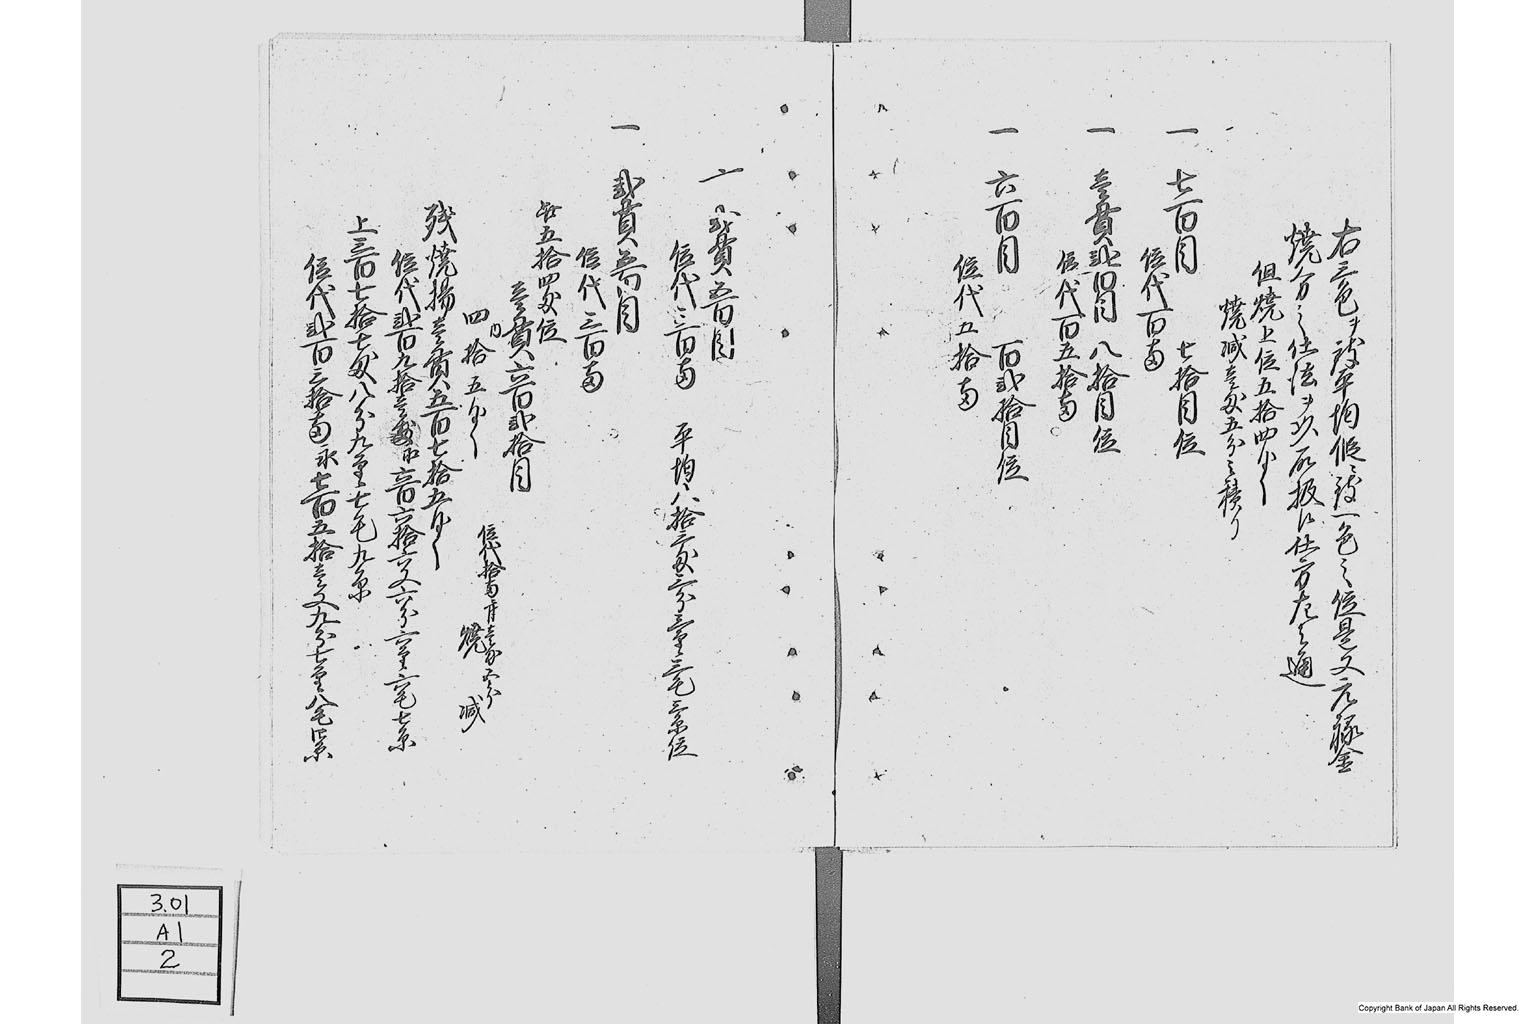 右三色ヲ致平均假ニ致一色之位是又元禄金
焼分之仕法ヲ以取扱候仕方左之通
但焼上位五拾四匁
焼減壱匁五分之積り
一 七百目 七拾目位
位代百両
一 壱貫弐百目 八拾目位
位代百五拾両
一 六百目 百弐拾目位
位代五拾両
〆弐貫五百目
位代三百両 平均八拾三匁三分三厘三毛三糸位
一 弐貫五百目
位代三百両
五拾四匁位
壱貫六百弐拾目
内
四拾五匁 焼減
位代拾両
残焼揚壱貫五百七拾五匁
位代弐百九拾壱両 六百六拾六文六分六厘六毛七糸
上三百七拾七匁八分九厘七毛九糸
位代弐百三拾両永七百五拾壱文九分七厘八毛四糸
3.01
A1
2
Copyright Bank of Japan All Rights Reserved.